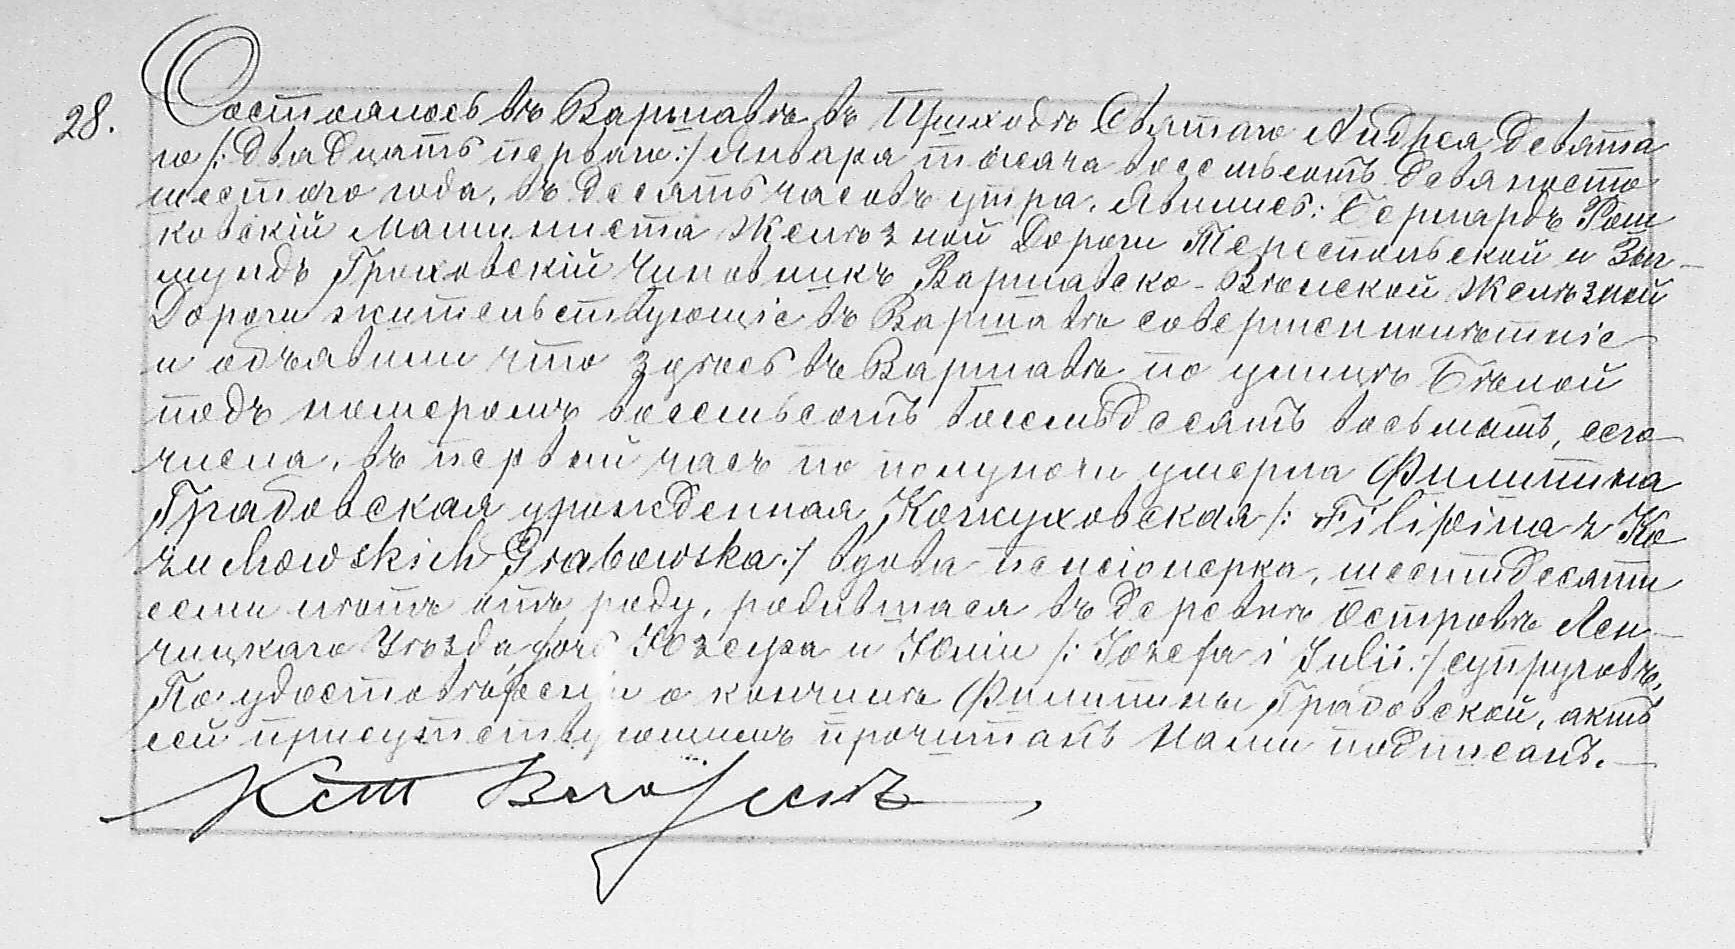 28.
Состоялось въ Варшавѣ въ Приходѣ Святаго Андрея девята
го /: двадцать перваго :/ Января тысяча восемьсотъ девяносто
шестого года, въ десять часовъ утра. Явились: Бернардъ
ковскій Машиниста Желѣзной Дороги Тереспольской и Зыг-
мундъ Гроховскій Чиновникъ Варшавско-Вѣнской Желѣзной
Дороги жительствующіе въ Варшавѣ совершеннолѣтніе
и объявили что здѣсь въ Варшавѣ по улицѣ Бѣлой
подъ номеромъ восемьсотъ восемьдесятъ восьмымъ, сего
числа, въ первый часъ по полуночи умерла Филипина
Грабовская урожденная Кожуховская /: Filipina z Ko
żuchowskich Grabowska :/ вдова пенсіонерка, шестидесяти
семи лѣтъ отъ роду, родившаяся въ деревнѣ Островѣ Лен-
чицкаго Уѣзда, дочь Юзефа и Юліи /: Józefa i Julii :/ супруговъ.
По удостовѣреніи о кончинѣ Филипины Грабовской, актъ
сей присутствующимъ прочитанъ Нами подписанъ.